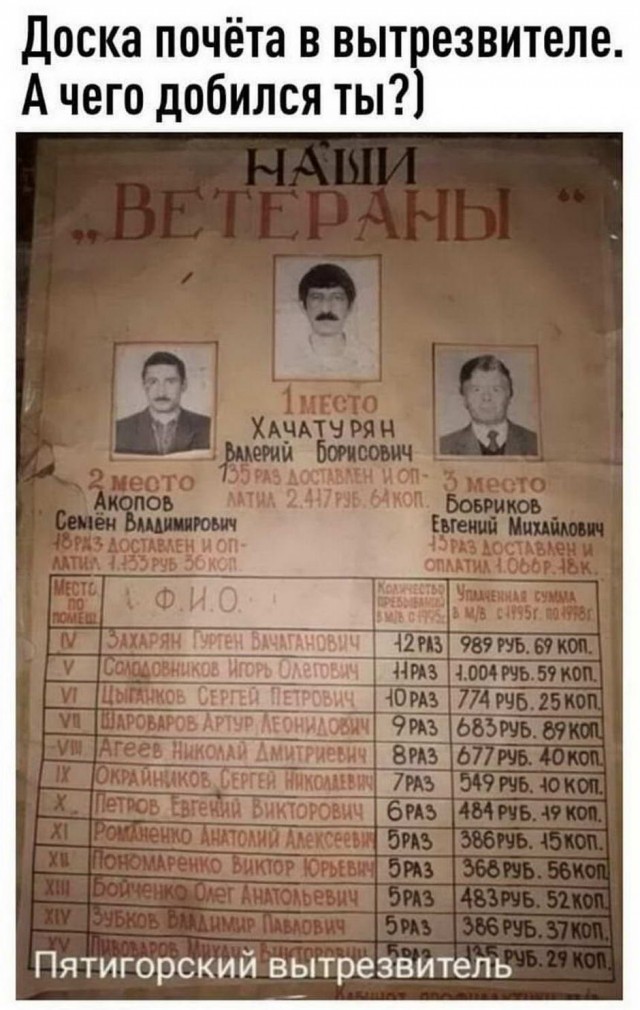 Доска почёта в вытрезвителе.
А чего добился ты?)
НАШИ
„ВЕТЕРАНЫ“
1 МЕСТО
ХАЧАТУРЯН
ВАЛЕРИЙ БОРИСОВИЧ
РАЗ ДОСТАВЛЕН И ОП-
ЛАТИЛ 2.417 РУБ. 64 КОП.
2 МЕСТО
АКОПОВ
СЕМЁН ВЛАДИМИРОВИЧ
РАЗ ДОСТАВЛЕН И ОП-
ЛАТИЛ 1.133 РУБ 36 КОП.
3 МЕСТО
БОБРИКОВ
ЕВГЕНИЙ МИХАЙЛОВИЧ
13 РАЗ ДОСТАВЛЕН И
ОПЛАТИЛ 1.066 Р. 18 К.
МЕСТО ПО ПОМЕЩ. Ф.И.О. КОЛИЧЕСТВО ПРЕБЫВАНИЙ В М/В С 1995г. УПЛАЧЕННАЯ СУММА В М/В С 1995г. ПО 1998г
IV ЗАХАРЯН ГУРГЕН ВАЧАГАНОВИЧ 12 РАЗ 989 РУБ. 69 КОП.
V СОЛОДОВНИКОВ ИГОРЬ ОЛЕГОВИЧ 11 РАЗ 1.004 РУБ. 59 КОП.
VI ЦЫГАНКОВ СЕРГЕЙ ПЕТРОВИЧ 10 РАЗ 774 РУБ. 25 КОП.
VII ШАРОВАРОВ АРТУР ЛЕОНИДОВИЧ 9 РАЗ 683 РУБ. 89 КОП.
VIII АГЕЕВ НИКОЛАЙ ДМИТРИЕВИЧ 8 РАЗ 677 РУБ. 40 КОП.
IX ОКРАЙНИКОВ СЕРГЕЙ НИКОЛАЕВИЧ 7 РАЗ 549 РУБ. 10 КОП.
X ПЕТРОВ ЕВГЕНИЙ ВИКТОРОВИЧ 6 РАЗ 484 РУБ. 19 КОП.
XI РОМАНЕНКО АНАТОЛИЙ АЛЕКСЕЕВИЧ 5 РАЗ 386 РУБ. 15 КОП.
XII ПОНОМАРЕНКО ВИКТОР ЮРЬЕВИЧ 5 РАЗ 368 РУБ. 56 КОП
XIII БОЙЧЕНКО ОЛЕГ АНАТОЛЬЕВИЧ 5 РАЗ 483 РУБ. 52 КОП.
XIV ЗУБКОВ ВЛАДИМИР ПАВЛОВИЧ 5 РАЗ 386 РУБ. 37 КОП.
XV ПИВОВАРОВ ВИКТОРОВИЧ 5 РАЗ РУБ. 29 КОП.
Пятигорский вытрезвитель